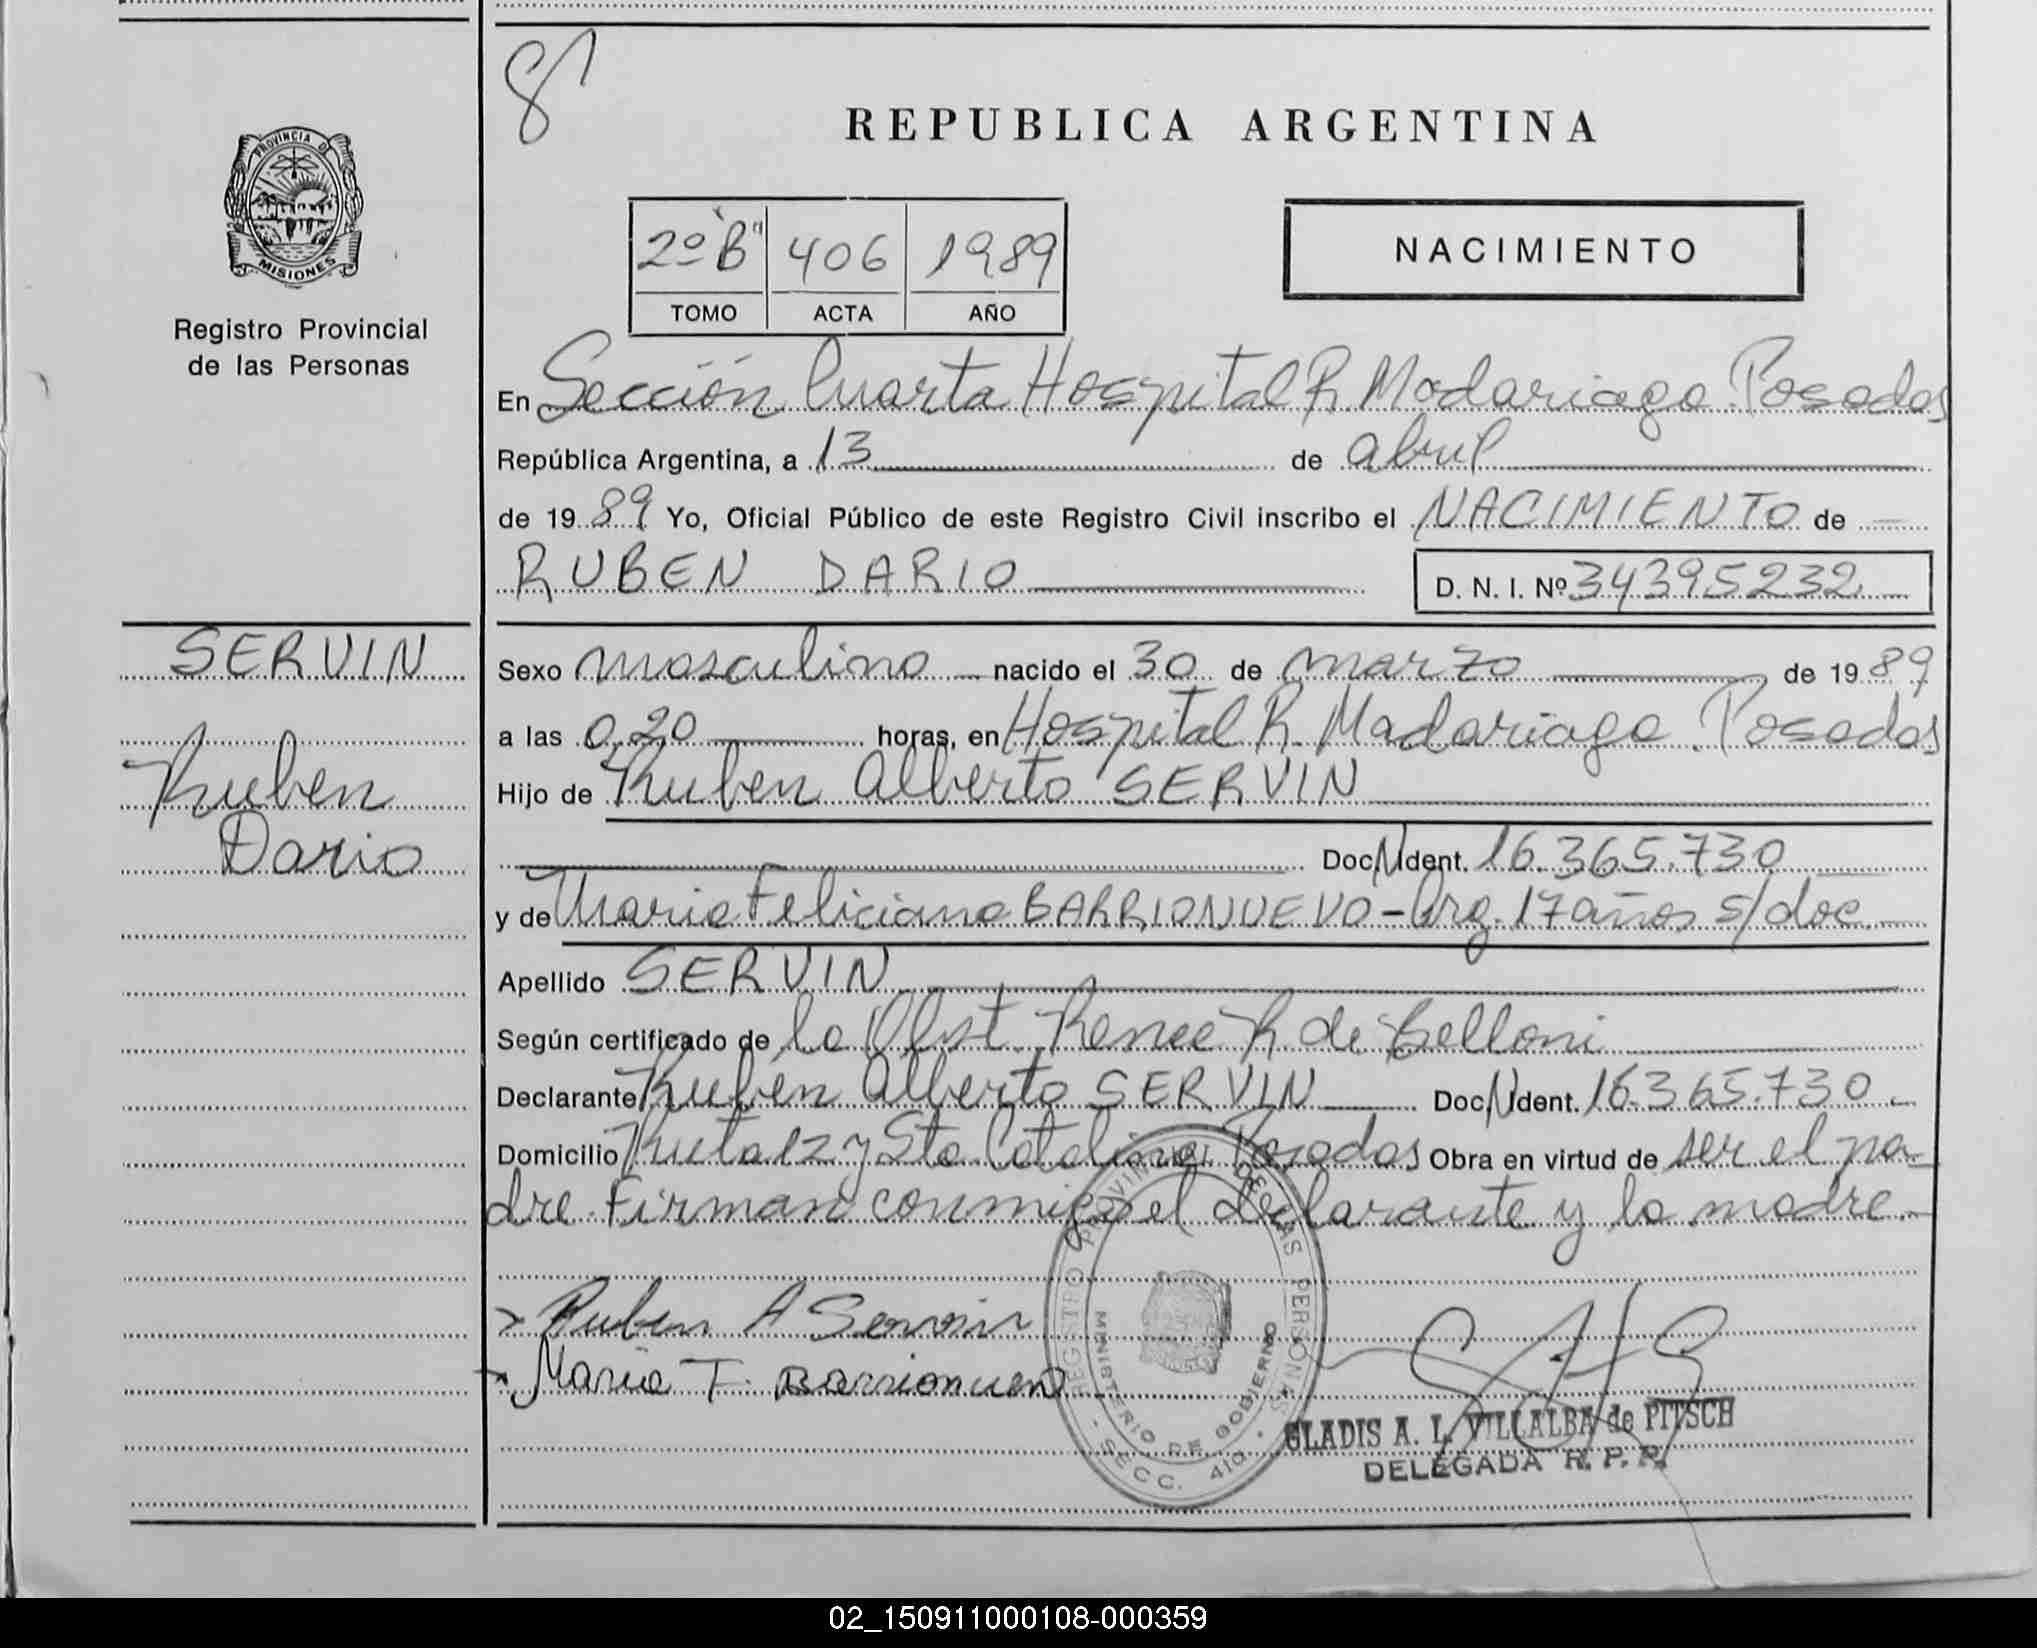 REPUBLICA ARGENTINA
PROVINCIA DE
MISIONES
Registro Provincial
de las Personas
2º "B" 406 1989
TOMO ACTA AÑO
NACIMIENTO
En Sección Cuarta Hospital R Madariaga Posadas
República Argentina, a 13 de abril
de 1989 Yo, Oficial Público de este Registro Civil inscribo el NACIMIENTO de
RUBEN DARIO D. N. I. Nº 34395232
SERVIN
Ruben
Dario
Sexo masculino nacido el 30 de marzo de 1989
a las 0,20 horas, en Hospital R. Madariaga. Posadas
Hijo de Ruben Alberto SERVIN
Doc. N Ident. 16.365.730
y de Maria Feliciana BARRIONUEVO - Arg. 17 años s/doc.
Apellido SERVIN
Según certificado de la Obst. Renee R de Belloni
Declarante Ruben Alberto SERVIN Doc. N Ident. 16.365.730
Domicilio Ruta 12 y Sta Catalina Posadas Obra en virtud de ser el pa-
dre. Firman conmigo el declarante y la madre.-
Ruben A Servin
Maria F. Barrionuevo
REGISTRO PROVINCIAL DE LAS PERSONAS
MINISTERIO DE GOBIERNO
SECC. 4ta
GLADIS A. L. VILLALBA de PITSCH
DELEGADA R. P. P.
02_150911000108-000359